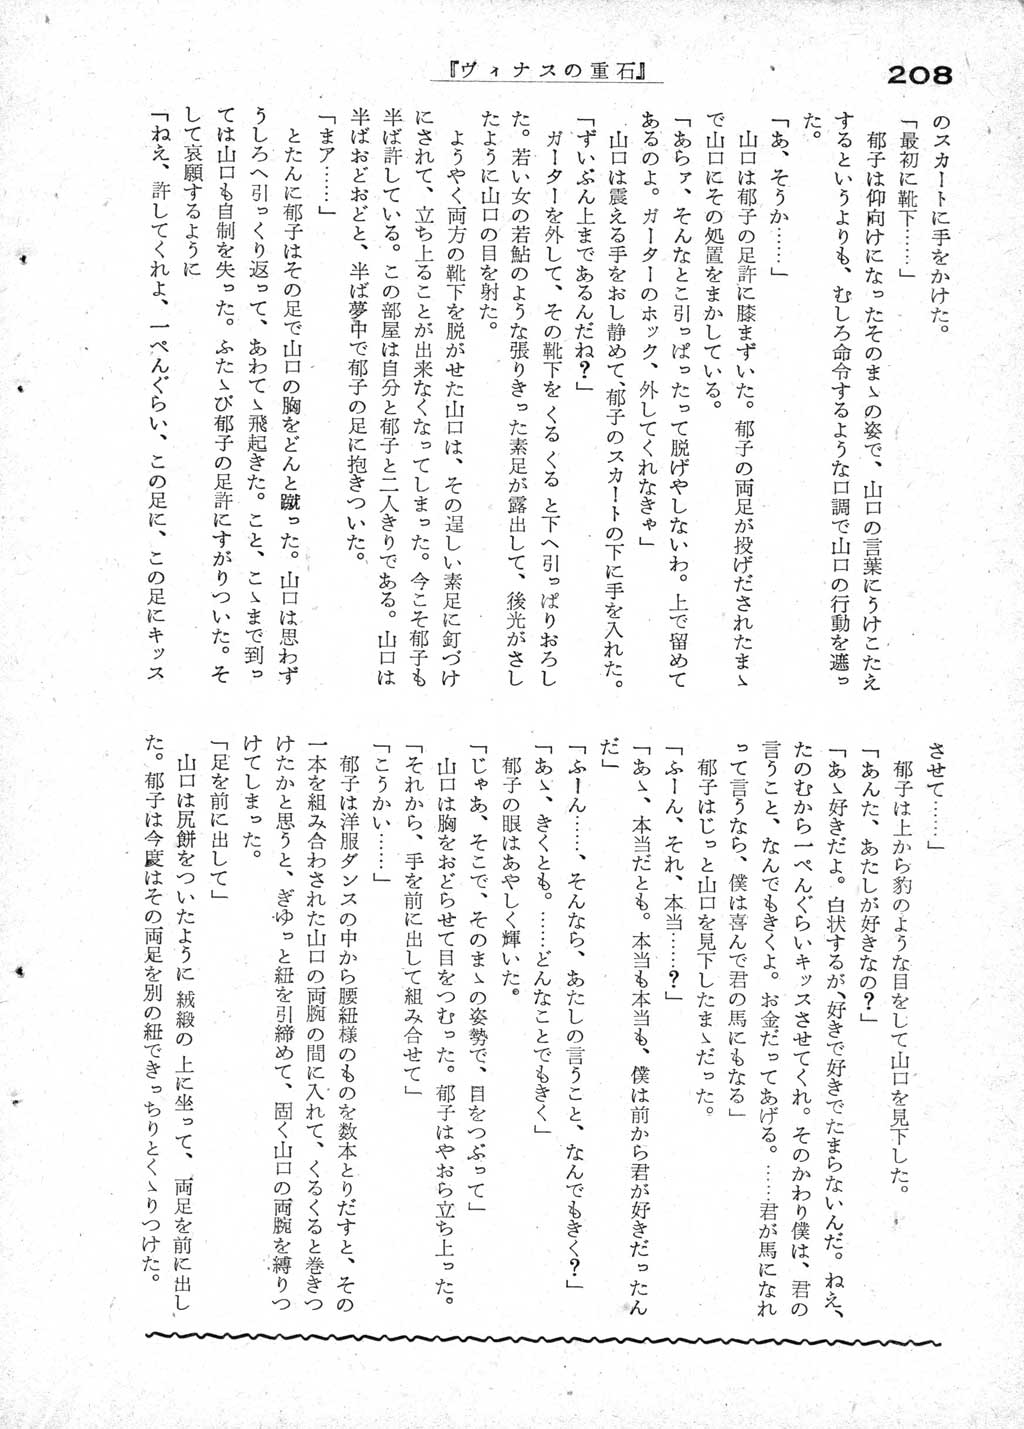 『ヴィナスの重石』
208
のスカートに手をかけた。
「最初に靴下……」
郁子は仰向けになったそのまゝの姿で、山口の言葉にうけこたえ
するというよりも、むしろ命令するような口調で山口の行動を遮っ
た。
「あ、そうか……」
山口は郁子の足許に膝まずいた。郁子の両足が投げだされたまゝ
で山口にその処置をまかしている。
「あらァ、そんなとこ引っぱったって脱げやしないわ。上で留めて
あるのよ。ガーターのホック、外してくれなきゃ」
山口は震える手をおし静めて、郁子のスカートの下に手を入れた。
「ずいぶん上まであるんだね？」
ガーターを外して、その靴下をくるくると下へ引っぱりおろし
た。若い女の若鮎のような張りきった素足が露出して、後光がさし
たように山口の目を射た。
ようやく両方の靴下を脱がせた山口は、その逞しい素足に釘づけ
にされて、立ち上ることが出来なくなってしまった。今こそ郁子も
半ば許している。この部屋は自分と郁子と二人きりである。山口は
半ばおどおどと、半ば夢中で郁子の足に抱きついた。
「まァ……」
とたんに郁子はその足で山口の胸をどんと蹴った。山口は思わず
うしろへ引っくり返って、あわてゝ飛起きた。こと、こゝまで到っ
ては山口も自制を失った。ふたゝび郁子の足許にすがりついた。そ
して哀願するように
「ねえ、許してくれよ、一ぺんぐらい、この足に、この足にキッス
させて……」
郁子は上から豹のような目をして山口を見下した。
「あんた、あたしが好きなの？」
「あゝ好きだよ。白状するが、好きで好きでたまらないんだ。ねえ、
たのむから一ぺんぐらいキッスさせてくれ。そのかわり僕は、君の
言うこと、なんでもきくよ。お金だってあげる。……君が馬になれ
って言うなら、僕は喜んで君の馬にもなる」
郁子はじっと山口を見下したまゝだった。
「ふーん、それ、本当……？」
「あゝ、本当だとも。本当も本当も、僕は前から君が好きだったん
だ」
「ふーん……、そんなら、あたしの言うこと、なんでもきく？」
「あゝ、きくとも。……どんなことでもきく」
郁子の眼はあやしく輝いた。
「じゃあ、そこで、そのまゝの姿勢で、目をつぶって」
山口は胸をおどらせて目をつむった。郁子はやおら立ち上った。
「それから、手を前に出して組み合せて」
「こうかい……」
郁子は洋服ダンスの中から腰紐様のものを数本とりだすと、その
一本を組み合わされた山口の両腕の間に入れて、くるくると巻きつ
けたかと思うと、ぎゆっと紐を引締めて、固く山口の両腕を縛りつ
けてしまった。
「足を前に出して」
山口は尻餅をついたように絨緞の上に坐って、両足を前に出し
た。郁子は今度はその両足を別の紐できっちりとくゝりつけた。